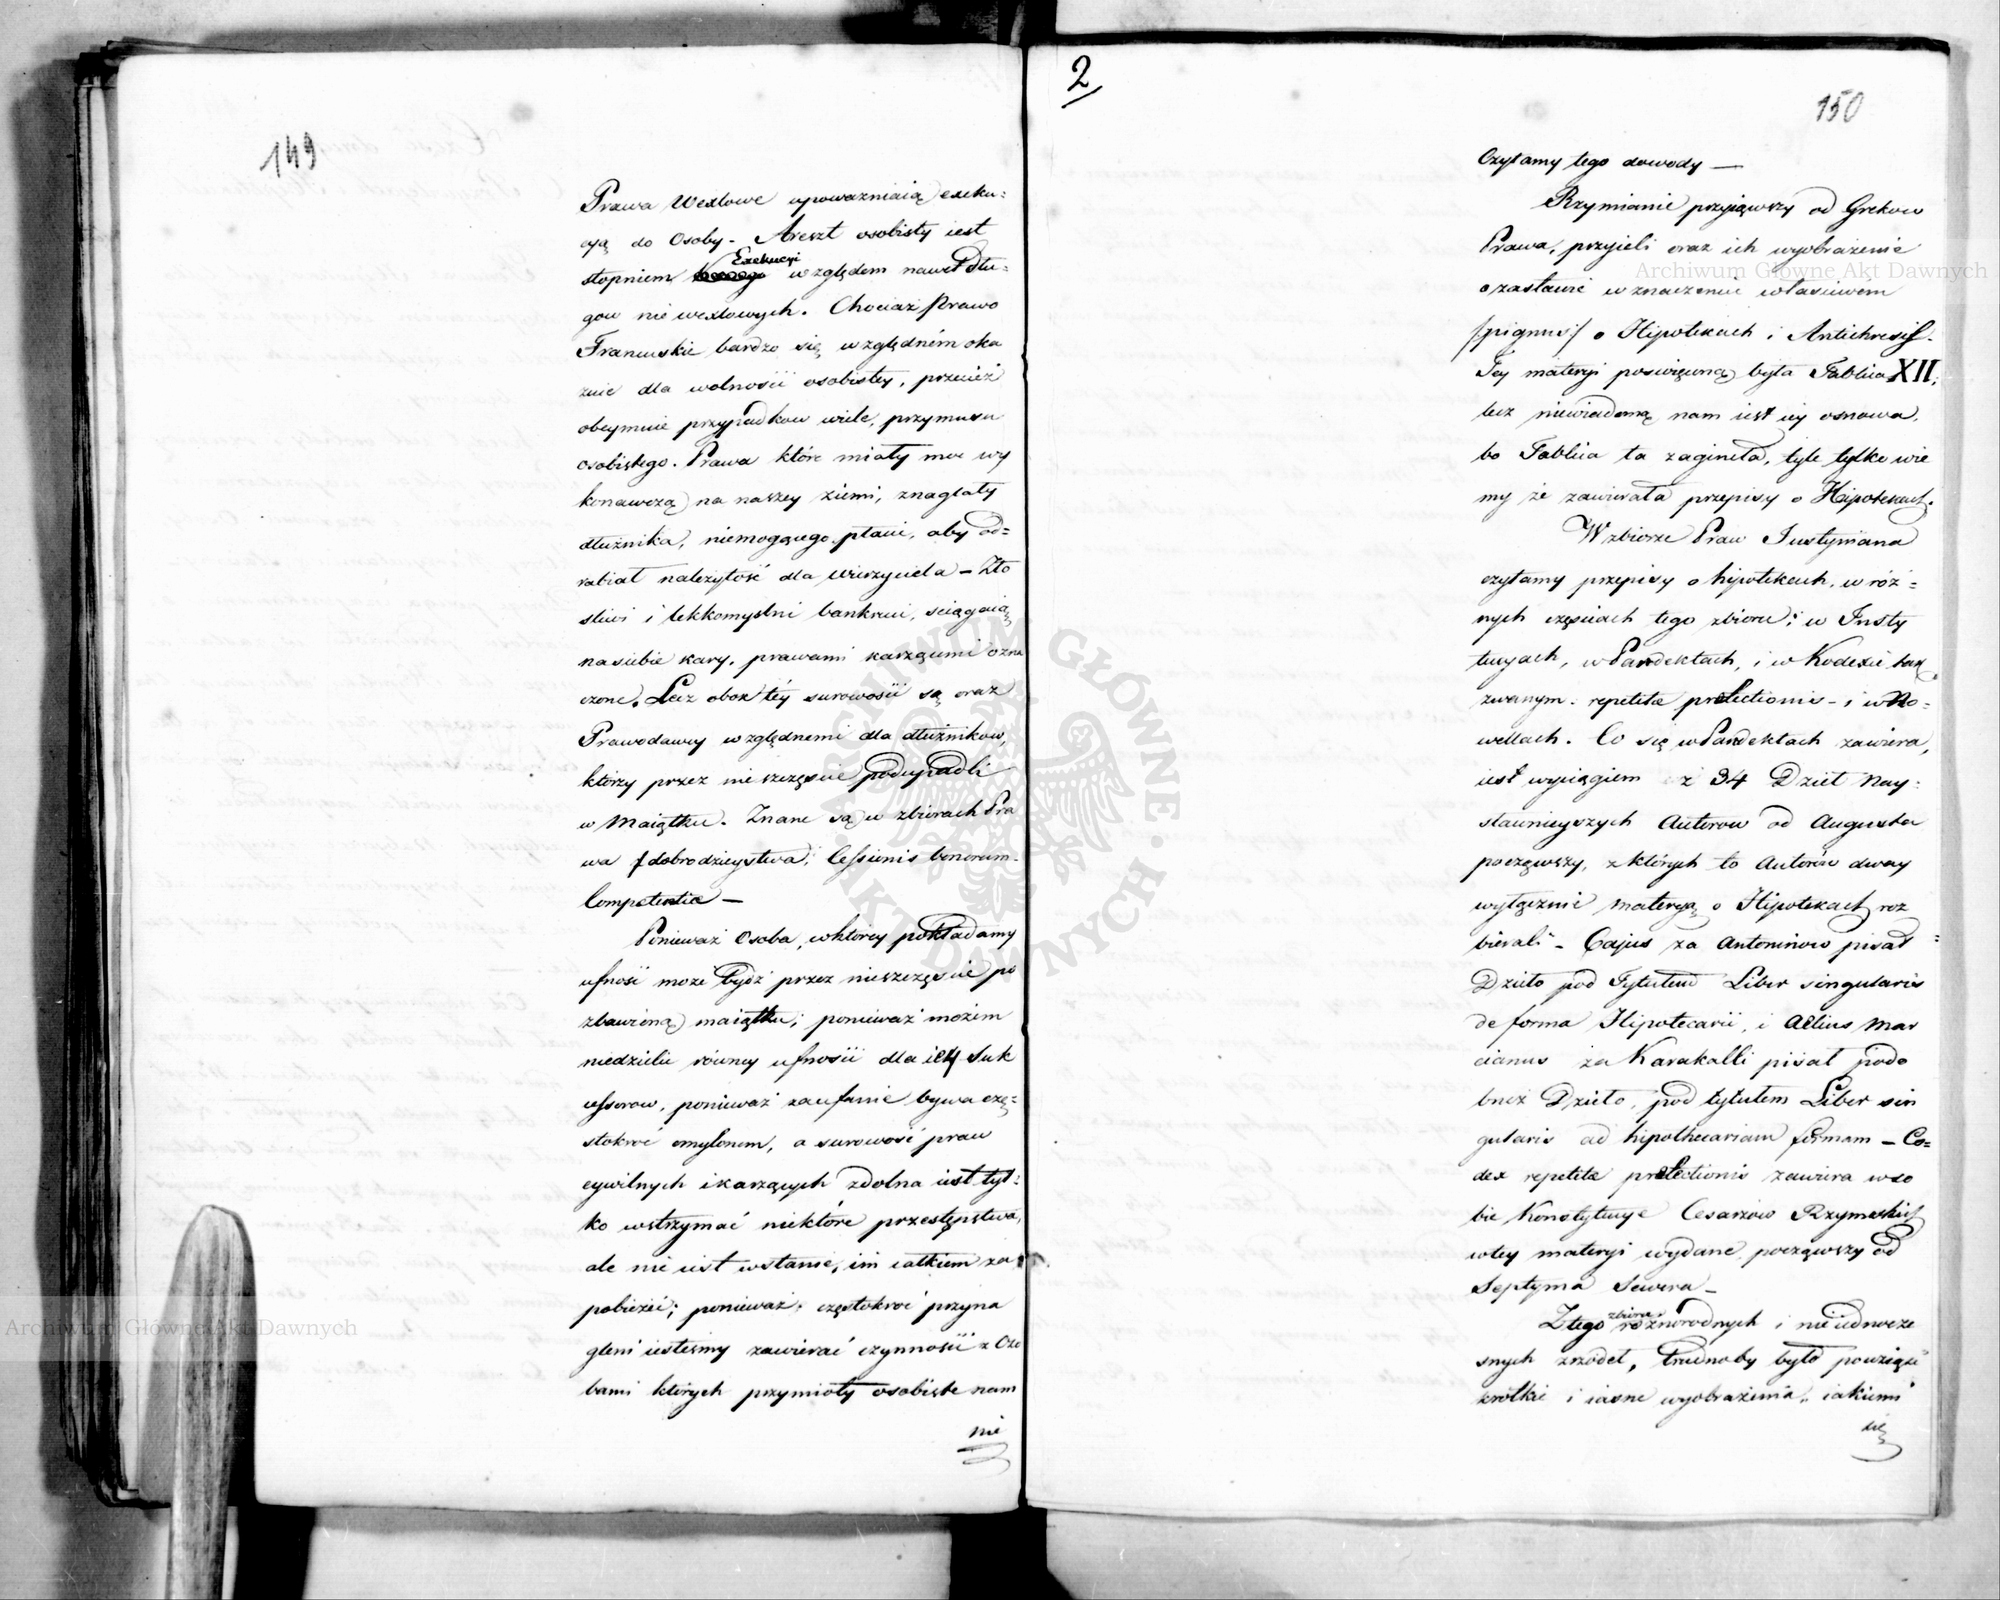 149
Prawa Wexlowe upoważniaią exeku:
cyą do Osoby - Areszt osobisty iest
Exekucyi
stopniem względem nawet dłu:
gow nie wexlowych. Chociaż Prawo
Francuskie bardzo się względném oka
zuie dla wolności osobistey, przecież
obeymuie przypadkow wiele, przymusu
osobistego. Prawa które miały moc wy
konawczą na naszey ziemi, znaglały
dłużnika, niemogącego płacić, aby od=
rabiał należytość dla wierzyciela - Zło
śliwi i lekkomyślni bankruci, sciągaią
na siebie kary, prawami karzącemi ozna
czone. Lecz obok téy surowości są oraz
Prawodawcy względnemi dla dłużnikow,
którzy przez nieszczęscie podupadli
w Maiątku. Znane są w zbiorach Pra
wa dobrodzieystwa; Cessionis bonorum.
Competentiæ —
Ponieważ Osoba, w ktorey pokładamy
ufność może bydź przez nieszczęscie po
zbawioną maiątku; ponieważ możem
niedzielić równey ufności dla iéy Suk
cessorow, ponieważ zaufanie bywa czę=
stokroć omylonem, a surowość praw
cywilnych i karzących zdolna iest tyl:
ko wstrzymać niektóre przestępstwa,
ale nie iest wstanie, im całkiem za
pobieżéć; ponieważ; częstokroć przyna
gleni iestesmy zawierać czynności z Oso
bami których przymioty osobiste nam
nie
2
150
Czytamy tego dowody —
Rzymianie przyiąwszy od Grekow
Prawa, przyieli oraz ich wyobrażenie
o zastawie w znaczeniu właściwém
/:pignus:/ o Hipotekach i Antichresis.
Tey materyi poswięconą była Tablica XII,
lecz niewiadomą nam iest iey osnowa,
bo Tablica ta zagineła, tyle tylko wie
my że zawierała przepisy o Hipotekach.
W zbiorze Praw Justyniana
czytamy przepisy o hipotekach, w róż=
nych częściach tego zbioru; w Insty
tucyach, w Pandektach, i w Kodexie tak
zwanym: repetitæ prælectionis - i w No=
wellach. Co się w Pandektach zawiera,
iest wyciągiem z 34 Dzieł Nay:
sławnieyszych Autorow od Augusta
począwszy, z których to Autorów dwaj
wyłącznie Materyą o Hipotekach roz
bierali - Cajus za Antoninow pisał
Dzieło pod Tytułem Liber singularis
de forma Hipotecarii, i Aelius Mar
cianus za Karakalli pisał podo
bnéż Dzieło, pod tytułem Liber sin
gularis ad hipothecariam formam - Co=
dex repetitæ prælectionis zawiera w so
bie Konstytucye Cesarzow Rzymskich
w tey materyi wydane, począwszy od
Septyma Sewera -
zbioru
Z tego różnorodnych i nieiednocze
snych zrzódeł, trudno by było powziąść
krótkie i iasne wyobrażenia, iakiemi
się
Archiwum Główne Akt Dawnych
Archiwum Główne Akt Dawnych
ARCHIWUM GŁÓWNE · AKT DAWNYCH ·